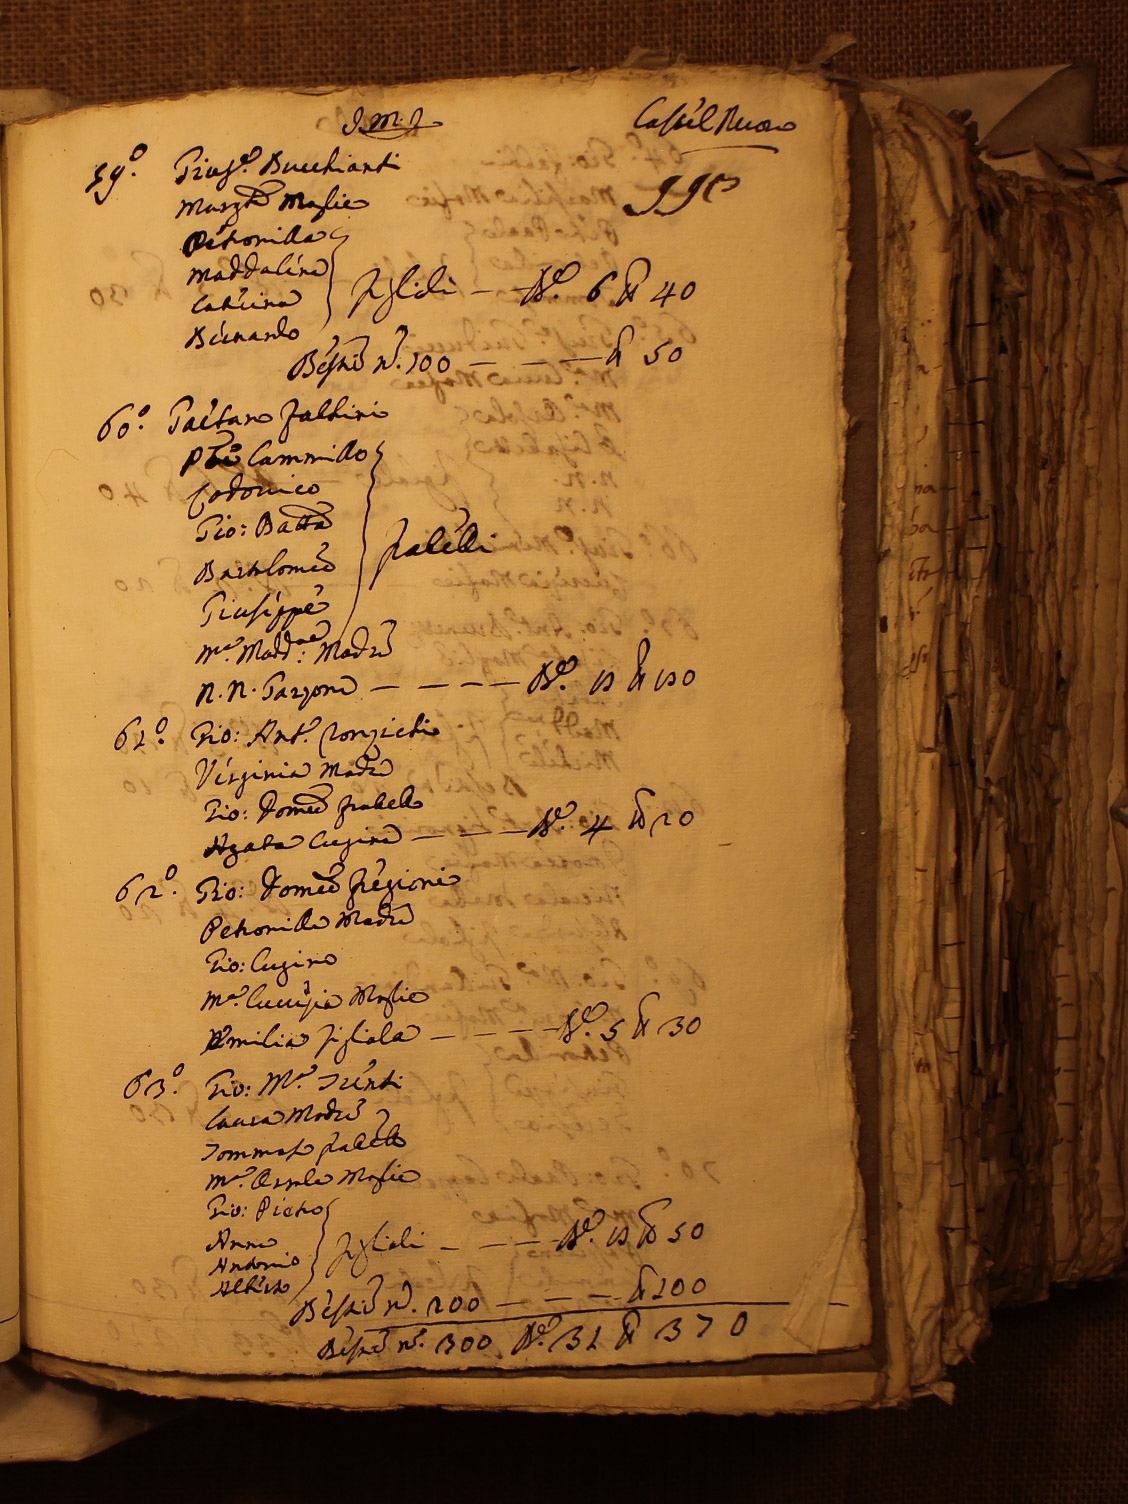 J.M.J. Castel Nuovo
990
59.° Gius.e Bucchianti
Margh.ta Moglie
Petronilla
Maddalena
Caterina
Bernardo
figlioli — N.o 6 40
Bestie n.° 100 — — — 50
60.° Gaetano Falchini
Cammillo
Lodovico
Gio: Batta
Bartolomeo
Giuseppe
fratelli
M.a Madd.na Madre
N.N. Garzone — — — — N.o 130
61.° Gio: Ant.o
Virginia Madre
Gio: Dom.co fratello
Agata Cugina — — — N.o 4 20
62.° Gio: Dom.co Fregioni
Petronilla Madre
Gio: Cugino
M.a Lucrezia Moglie
Emilia figliola — — — — N.o 5 30
63.° Gio: M.a
Laura Madre
Tommaso fratello
M.a Orsola Moglie
Gio: Pietro
Anna
Antonio
Alberto
figlioli — — — N.o 50
Bestie n.° 200 — — — 100
Bestie n.° 300 N.o 31 370